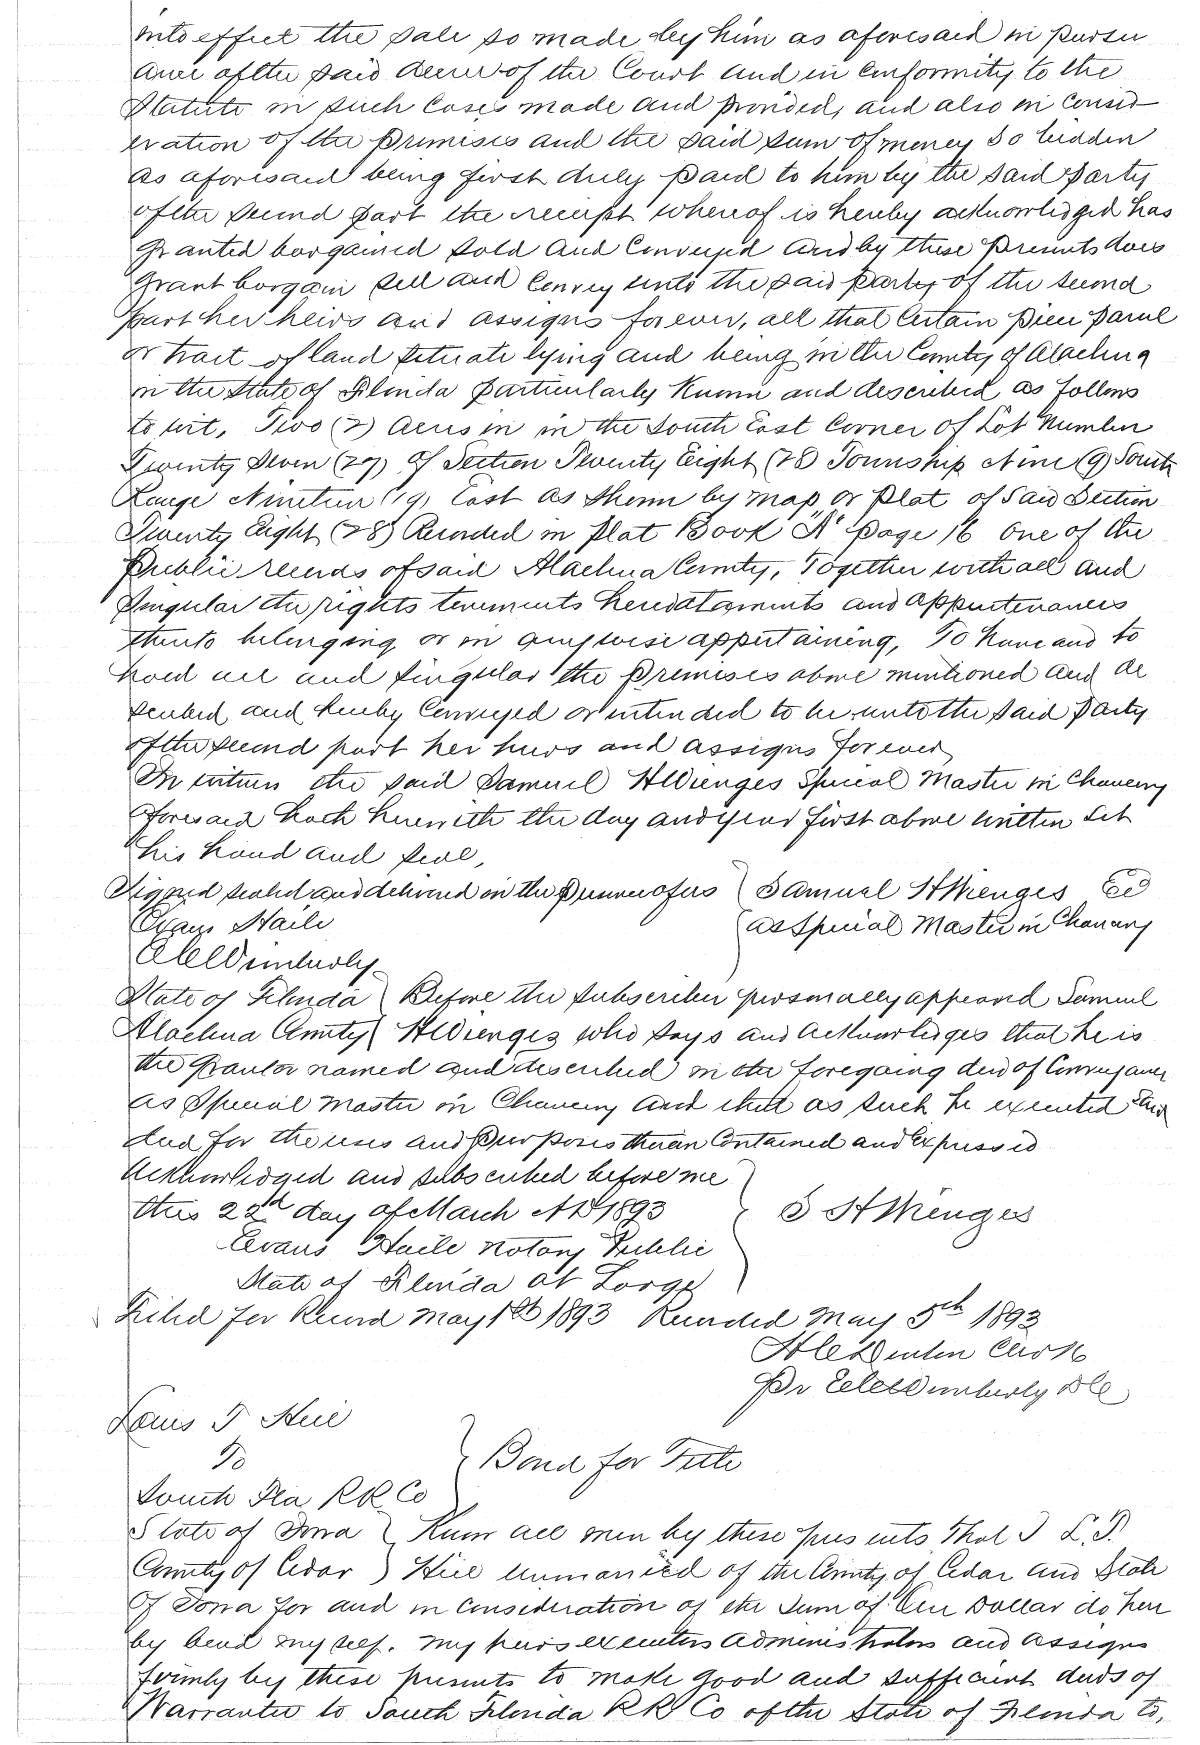 into effect the sale so made by him as aforesaid in pursu
ance of the said decree of the Court and in conformity to the
Statute in such Cases made and provided, and also in consid
eration of the premises and the said sum of money so bidden
as aforesaid being first duly paid to him by the said party
of the second part the receipt whereof is hereby acknowledged has
granted bargained sold and Conveyed and by these presents does
grant bargain sell and convey unto the said party of the second
part her heirs and assigns forever, all that Certain piece parcel
or tract of land situate lying and being in the County of Alachua
in the State of Florida particularly Known and described as follows
to wit, Two (2) Acres in in the South East Corner of Lot Number
Twenty Seven (27) of Section Twenty Eight (28) Township Nine (9) South
Range Nineteen (19) East as shown by map or plat of said Section
Twenty Eight (28) Recorded in Plat Book "A" page 16 one of the
Public records of said Alachua County, Together with all and
Singular the rights tenements heredataments and appurtenances
thereto belonging or in anywise appertaining, To have and to
hold all and singular the premises above mentioned and de
scribed and hereby Conveyed or intended to be unto the said party
of the second part her heirs and assigns forever
In witness the said Samuel H Wienges Special Master in Chancery
aforesaid hath herewith the day and year first above written set
his hand and seal,
Signed sealed and delivered in the presence of us } Samuel H Wienges
Evans Haile } as Special Master in Chancery
Wimberly
State of Florida } Before the subscriber personally appeared Samuel
Alachua County } H Wienges who says and acknowledges that he is
the Grantor named and described in the foregoing deed of Conveyance
as Special Master in Chancery and that as such he executed said
deed for the uses and purposes therein Contained and Expressed
Acknowledged and subscribed before me
this 22d day of March AD 1893 } S H Wienges
Evans Haile Notary Public
State of Florida at Large
Filed for Record May 1st 1893 Recorded May 5th 1893
Denton Clerk
Pr Wimberly DC
Louis T Hill
To } Bond for Title
South Fla RR Co
State of Iowa } Know all men by these presents that I L.T.
County of Cedar } Hill unmarried of the County of Cedar and State
of Iowa for and in consideration of the sum of One Dollar do here
by bind myself. my heirs executors administrators and assigns
firmly by these presents to make good and sufficient deeds of
Warrantee to South Florida RR Co of the State of Florida to,